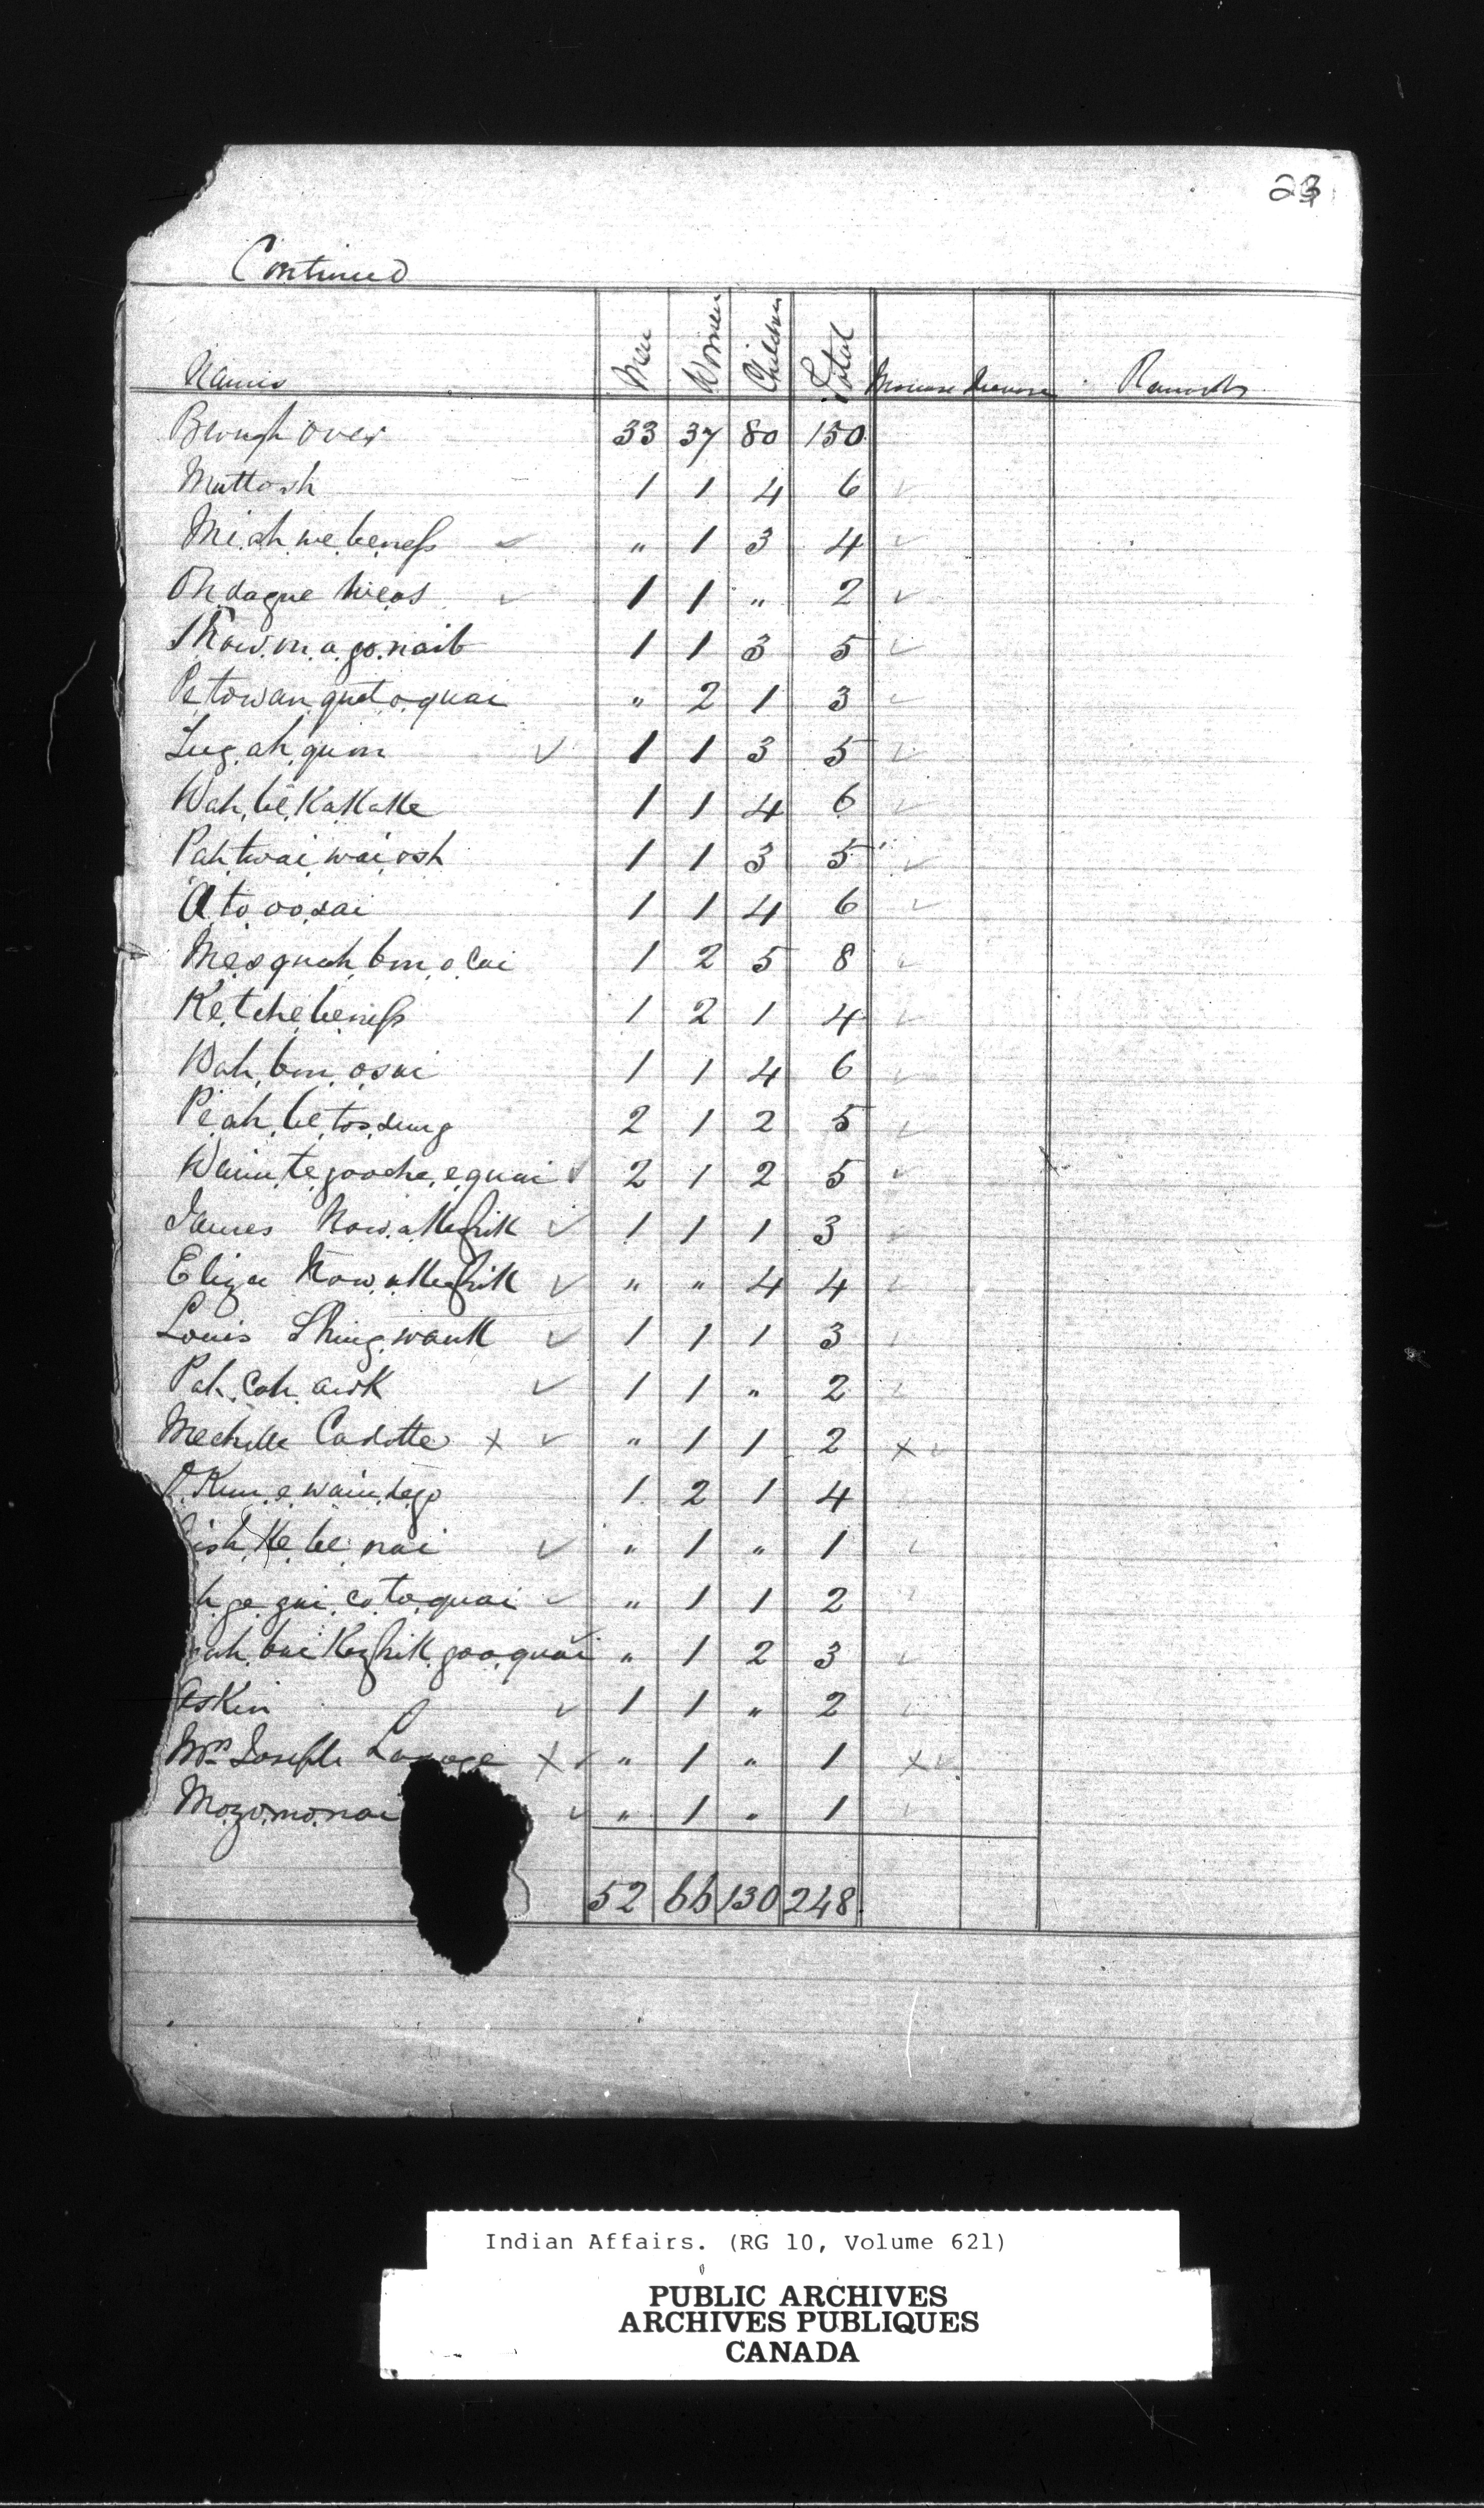 23
Continued
Names Men Women Children Total Decrease Remarks
Brought over 33 37 80 150
Muttosh 1 1 4 6 ✓
Mi.ah.we.beness ✓ " 1 3 4 ✓
Oh.dague meas ✓ 1 1 " 2 ✓
Shaw.on.a.go.naib 1 1 3 5 ✓
Pe.towan.guet.o.quai " 2 1 3 ✓
Zug.ah.gum ✓ 1 1 3 5 ✓
Wah.be.KaKaKe 1 1 4 6 ✓
Pah.twai.wai.osh 1 1 3 5 ✓
A.to.oo.sai 1 1 4 6 ✓
Mesquah.bun.o.cai 1 2 5 8 ✓
Ke.tche.beness 1 2 1 4 ✓
Wah.bun.osai 1 1 4 6 ✓
Pe.ah.be.tos.sung 2 1 2 5 ✓
Waum.te.gooche.equai ✓ 2 1 2 5 ✓
James Now.a.Keghik ✓ 1 1 1 3 ✓
Eliza Now.a.Keghik ✓ " " 4 4 ✓
Louis Shing.wauK ✓ 1 1 1 3 ✓
Pah.cah.awK ✓ 1 1 " 2 ✓
Mechelle Cadotte x ✓ " 1 1 2 x ✓
O.Kum.e.wain.dego 1 2 1 4
ish.Ke.be.nai ✓ " 1 " 1 ✓
h.ge.gui.co.to.quai ✓ " 1 1 2 ✓
ah.bui Kezhik.goo.quai ✓ " 1 2 3 ✓
asKin ✓ 1 1 " 2 ✓
Mrs Joseph x ✓ " 1 " 1 x ✓
Mozo.mo.nai ✓ " 1 " 1 ✓
52 66 130 248
Indian Affairs. (RG 10, Volume 621)
PUBLIC ARCHIVES
ARCHIVES PUBLIQUES
CANADA